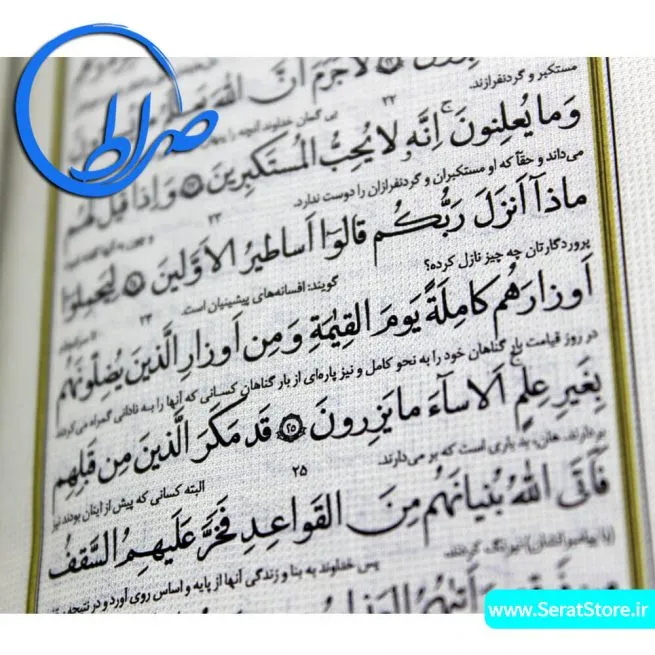 صراط
لا جَرَمَ اَنَّ اللهَ
مستکبر و گردنفرازند.
۲۲
بی گمان خداوند آنچه را
وَ ما يُعلِنونَ اِنَّهُ لا يُحِبُّ المُستَكبِرينَ ۲۳ وَ اِذا قيلَ لَهُم
می‌داند و حقاً که او مستکبران و گردنفرازان را دوست ندارد.
۲۳
ماذآ اَنزَلَ رَبُّكُم قالوٓا اَساطيرُ الاَوَّلينَ ۲۴ لِيَحمِلوٓا
پروردگارتان چه چیز نازل کرده؟
گویند: افسانه‌های پیشینیان است.
۲۴
اَوزارَهُم كامِلَةً يَومَ القِيٰمَةِ وَ مِن اَوزارِ الَّذينَ يُضِلّونَهُم
در روز قیامت بار گناهان خود را به نحو کامل و نیز پاره‌ای از بار گناهان کسانی که آنها را به نادانی گمراه می‌کردند
بِغَيرِ عِلمٍ اَلا سآءَ ما يَزِرونَ ۲۵ قَد مَكَرَ الَّذينَ مِن قَبلِهِم
بردارند. هان، بد باری است که بر می‌دارند.
۲۵
البته کسانی که پیش از اینان بودند نیز
فَاَتَى اللهُ بُنيانَهُم مِنَ القَواعِدِ فَخَرَّ عَلَيهِمُ السَّقفُ
(با پیامبرانشان) نیرنگ کردند.
پس خداوند به بنا و زندگی آنها از پایه و اساس روی آورد و در نتیجه
www.SeratStore.ir